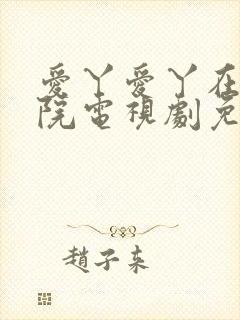 愛丫愛丫在
院電視劇免
趙子来